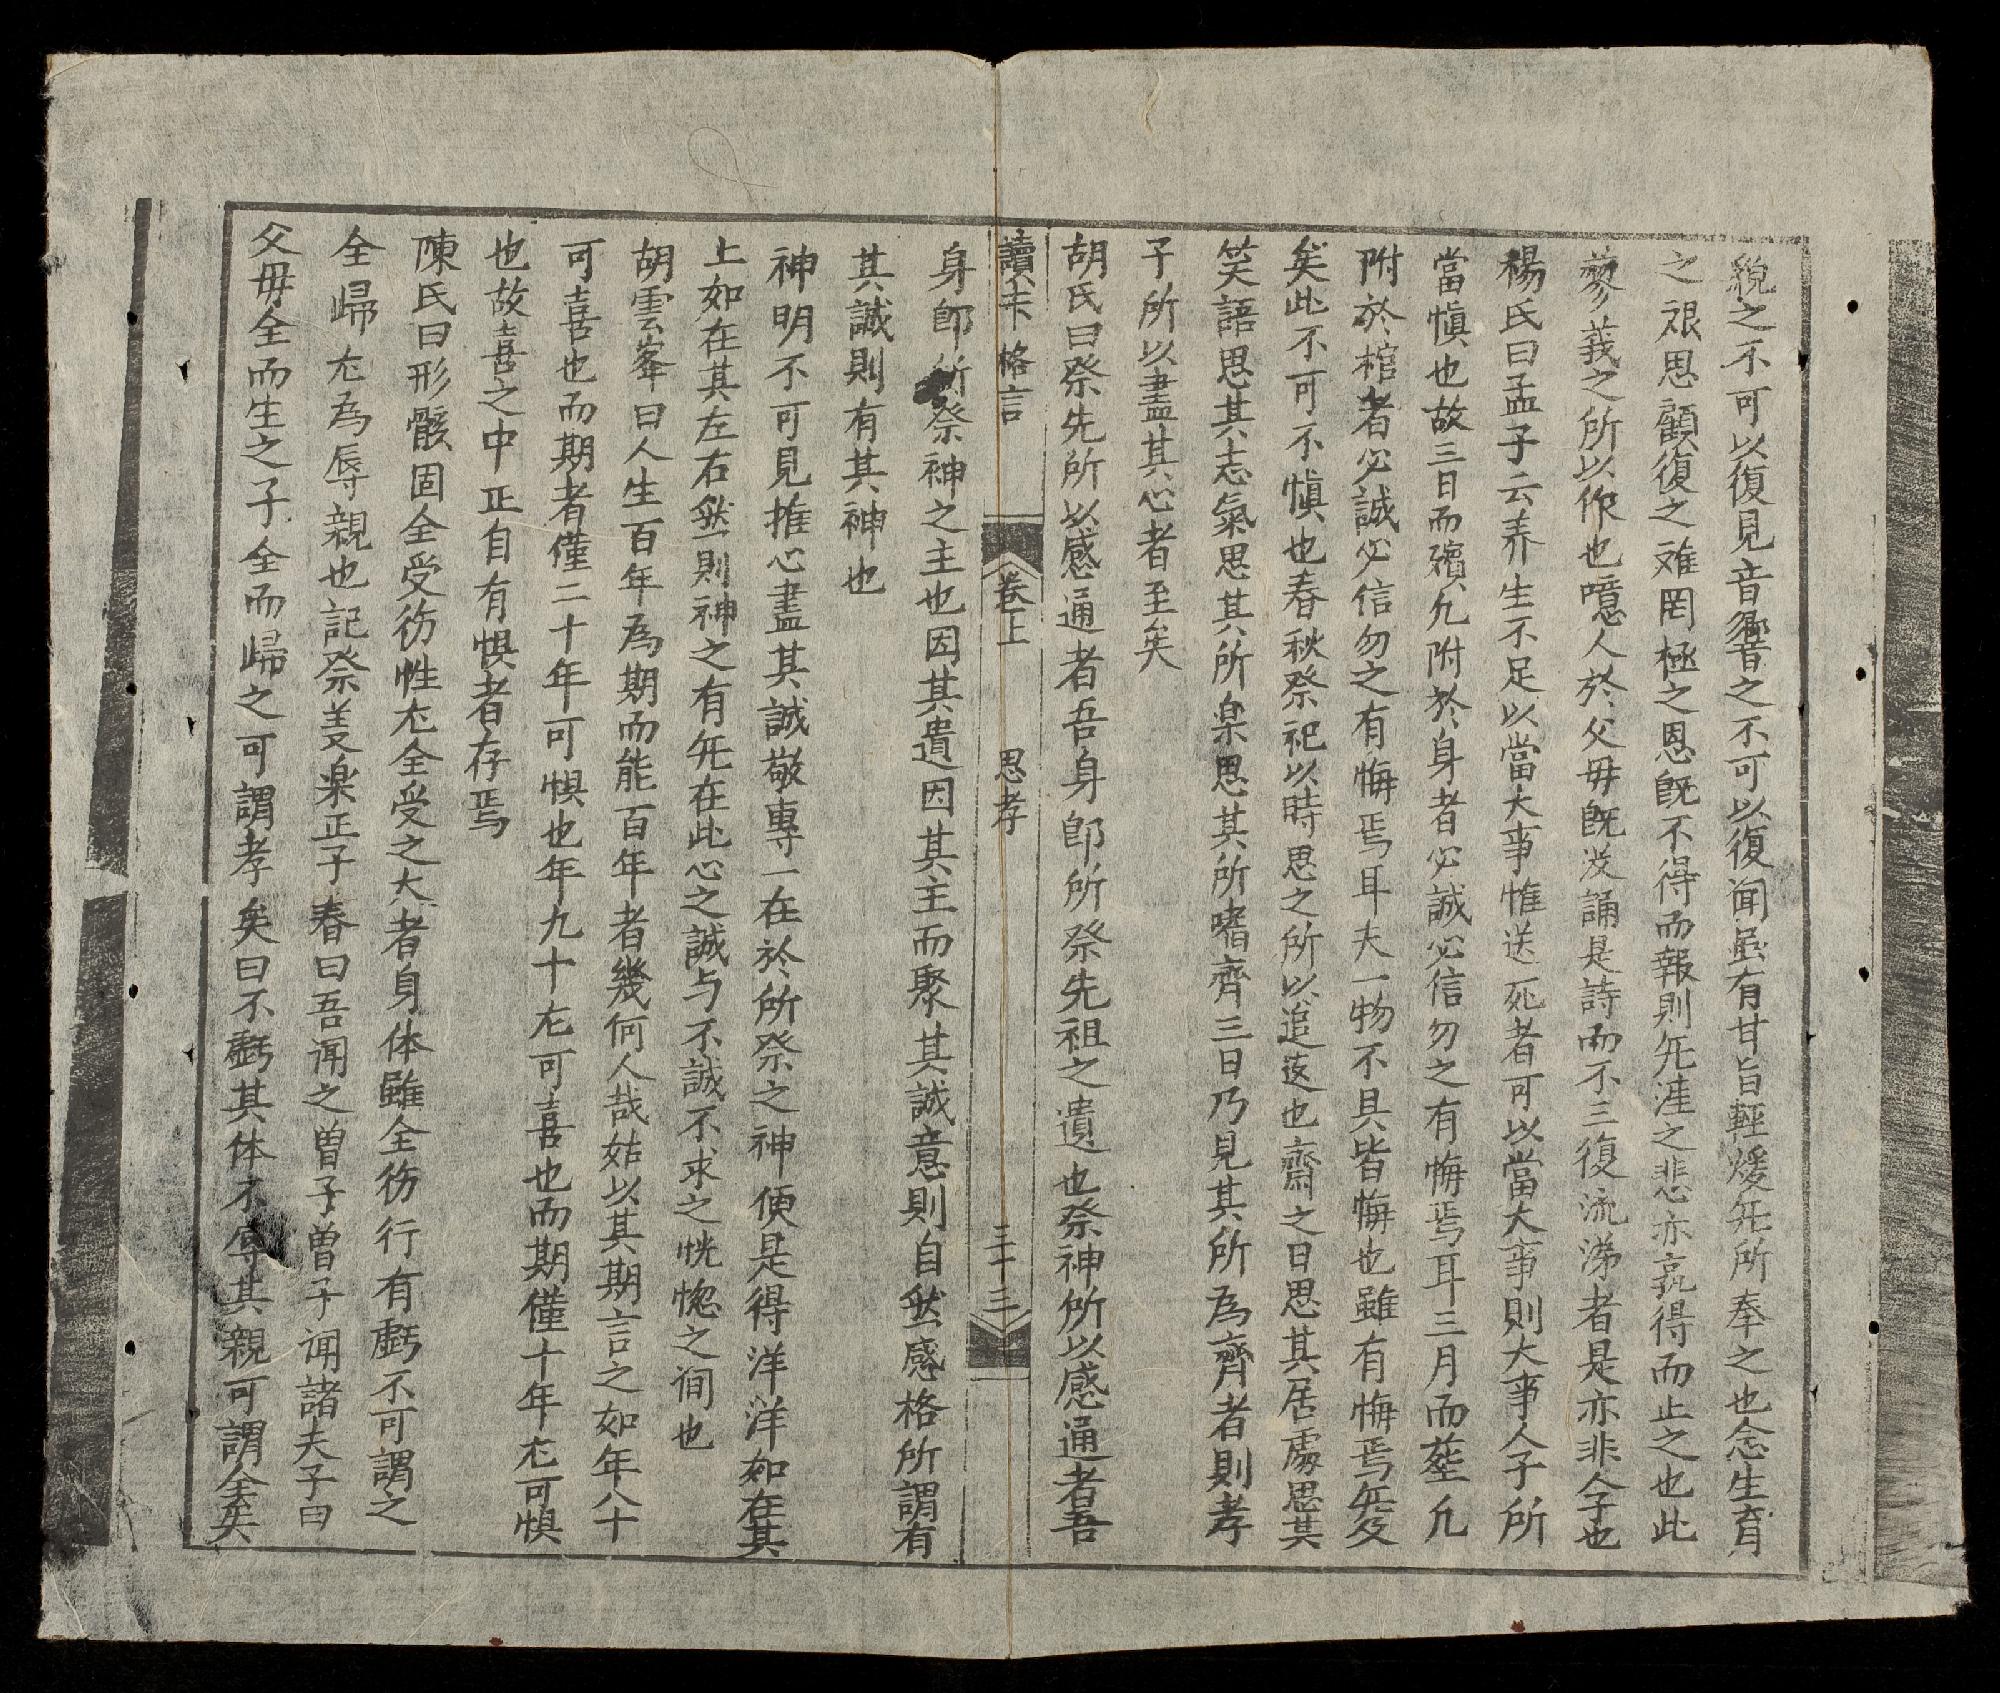 貌之不可以復見音響之不可以復闻虽有甘旨輕煖旡所奉之也念生育
之艰思顧復之难罔極之恩旣不得而報則旡涯之悲亦烏得而止之也此
蓼莪之所以作也噫人於父毋旣没誦是詩而不三復流涕者是亦非人子也
楊氏曰孟子云养生不足以當大事惟送死者可以當大事則大事人子所
當愼也故三日而殯凢附於身者必誠必信勿之有悔焉耳三月而塟凢
附於棺者必誠必信勿之有悔焉耳夫一物不具皆悔也雖有悔焉旡及
矣此不可不愼也春秋祭祀以時思之所以追逺也齋之日思其居處思其
笑語思其志氣思其所楽思其所嗜齊三日乃見其所為齊者則孝
子所以盡其心者至矣
胡氏曰祭先所以感通者吾身卽所祭先祖之遺也祭神所以感通者吾
讀書格言 卷上 思孝 三十三
身卽所祭神之主也因其遺因其主而聚其誠意則自然感格所謂有
其誠則有其神也
神明不可見推心盡其誠敬專一在於所祭之神便是得洋洋如在其
上如在其左右然則神之有旡在此心之誠与不誠不求之恍惚之间也
胡雲峯曰人生百年為期而能百年者幾何人哉姑以其期言之如年八十
可喜也而期者僅二十年可惧也年九十尤可喜也而期僅十年尤可惧
也故喜之中正自有惧者存焉
陳氏曰形骸固全受伤性尤全受之大者身体雖全伤行有虧不可謂之
全歸尤為辱親也記祭义楽正子春曰吾闻之曾子曾子闻諸夫子曰
父毋全而生之子全而歸之可謂孝矣曰不虧其体不辱其親可謂全矣